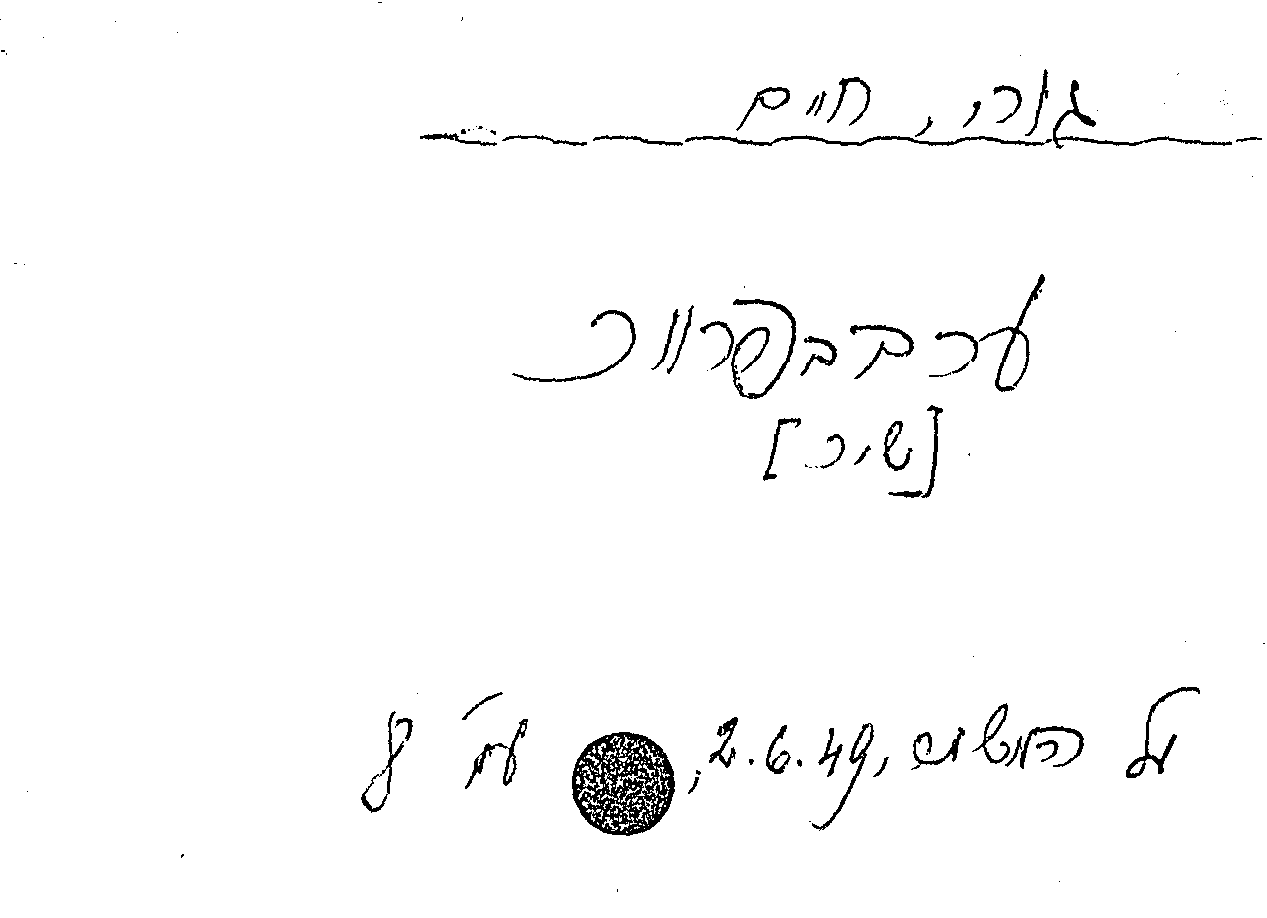 גורי, חיים
ערב בפרוור
[שיר]
על המשמר, 2.6.49, עמ' 8